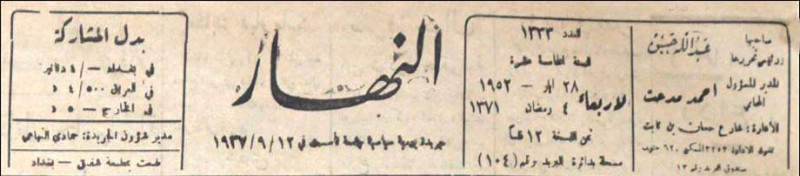 صاحبها
ورئيس تحريرها
عبدالله حسن
المدير المسؤول
المحامي
احمد مدحت
الادارة: شارع حسان بن ثابت
صندوق البريد رقم ١٣
العدد ١٣٣٣
السنة الخامسة عشرة
الاربعاء
٢٨ ايار – ١٩٥٢
٤ رمضان ١٣٧١
ثمن النسخة ١٢ فلساً
مسجلة بدائرة البريد برقم (١٠٤)
النهار
جريدة يومية سياسية تأسست في ١٩٣٧/٩/١٢
بدل المشاركة
في بغداد –/٤ دنانير
في العراق ٤/٥٠٠ د
في الخارج –/٥ د
مدير شؤون الجريدة: حمادي الناهي
طبعت بمطبعة شفيق – بغداد